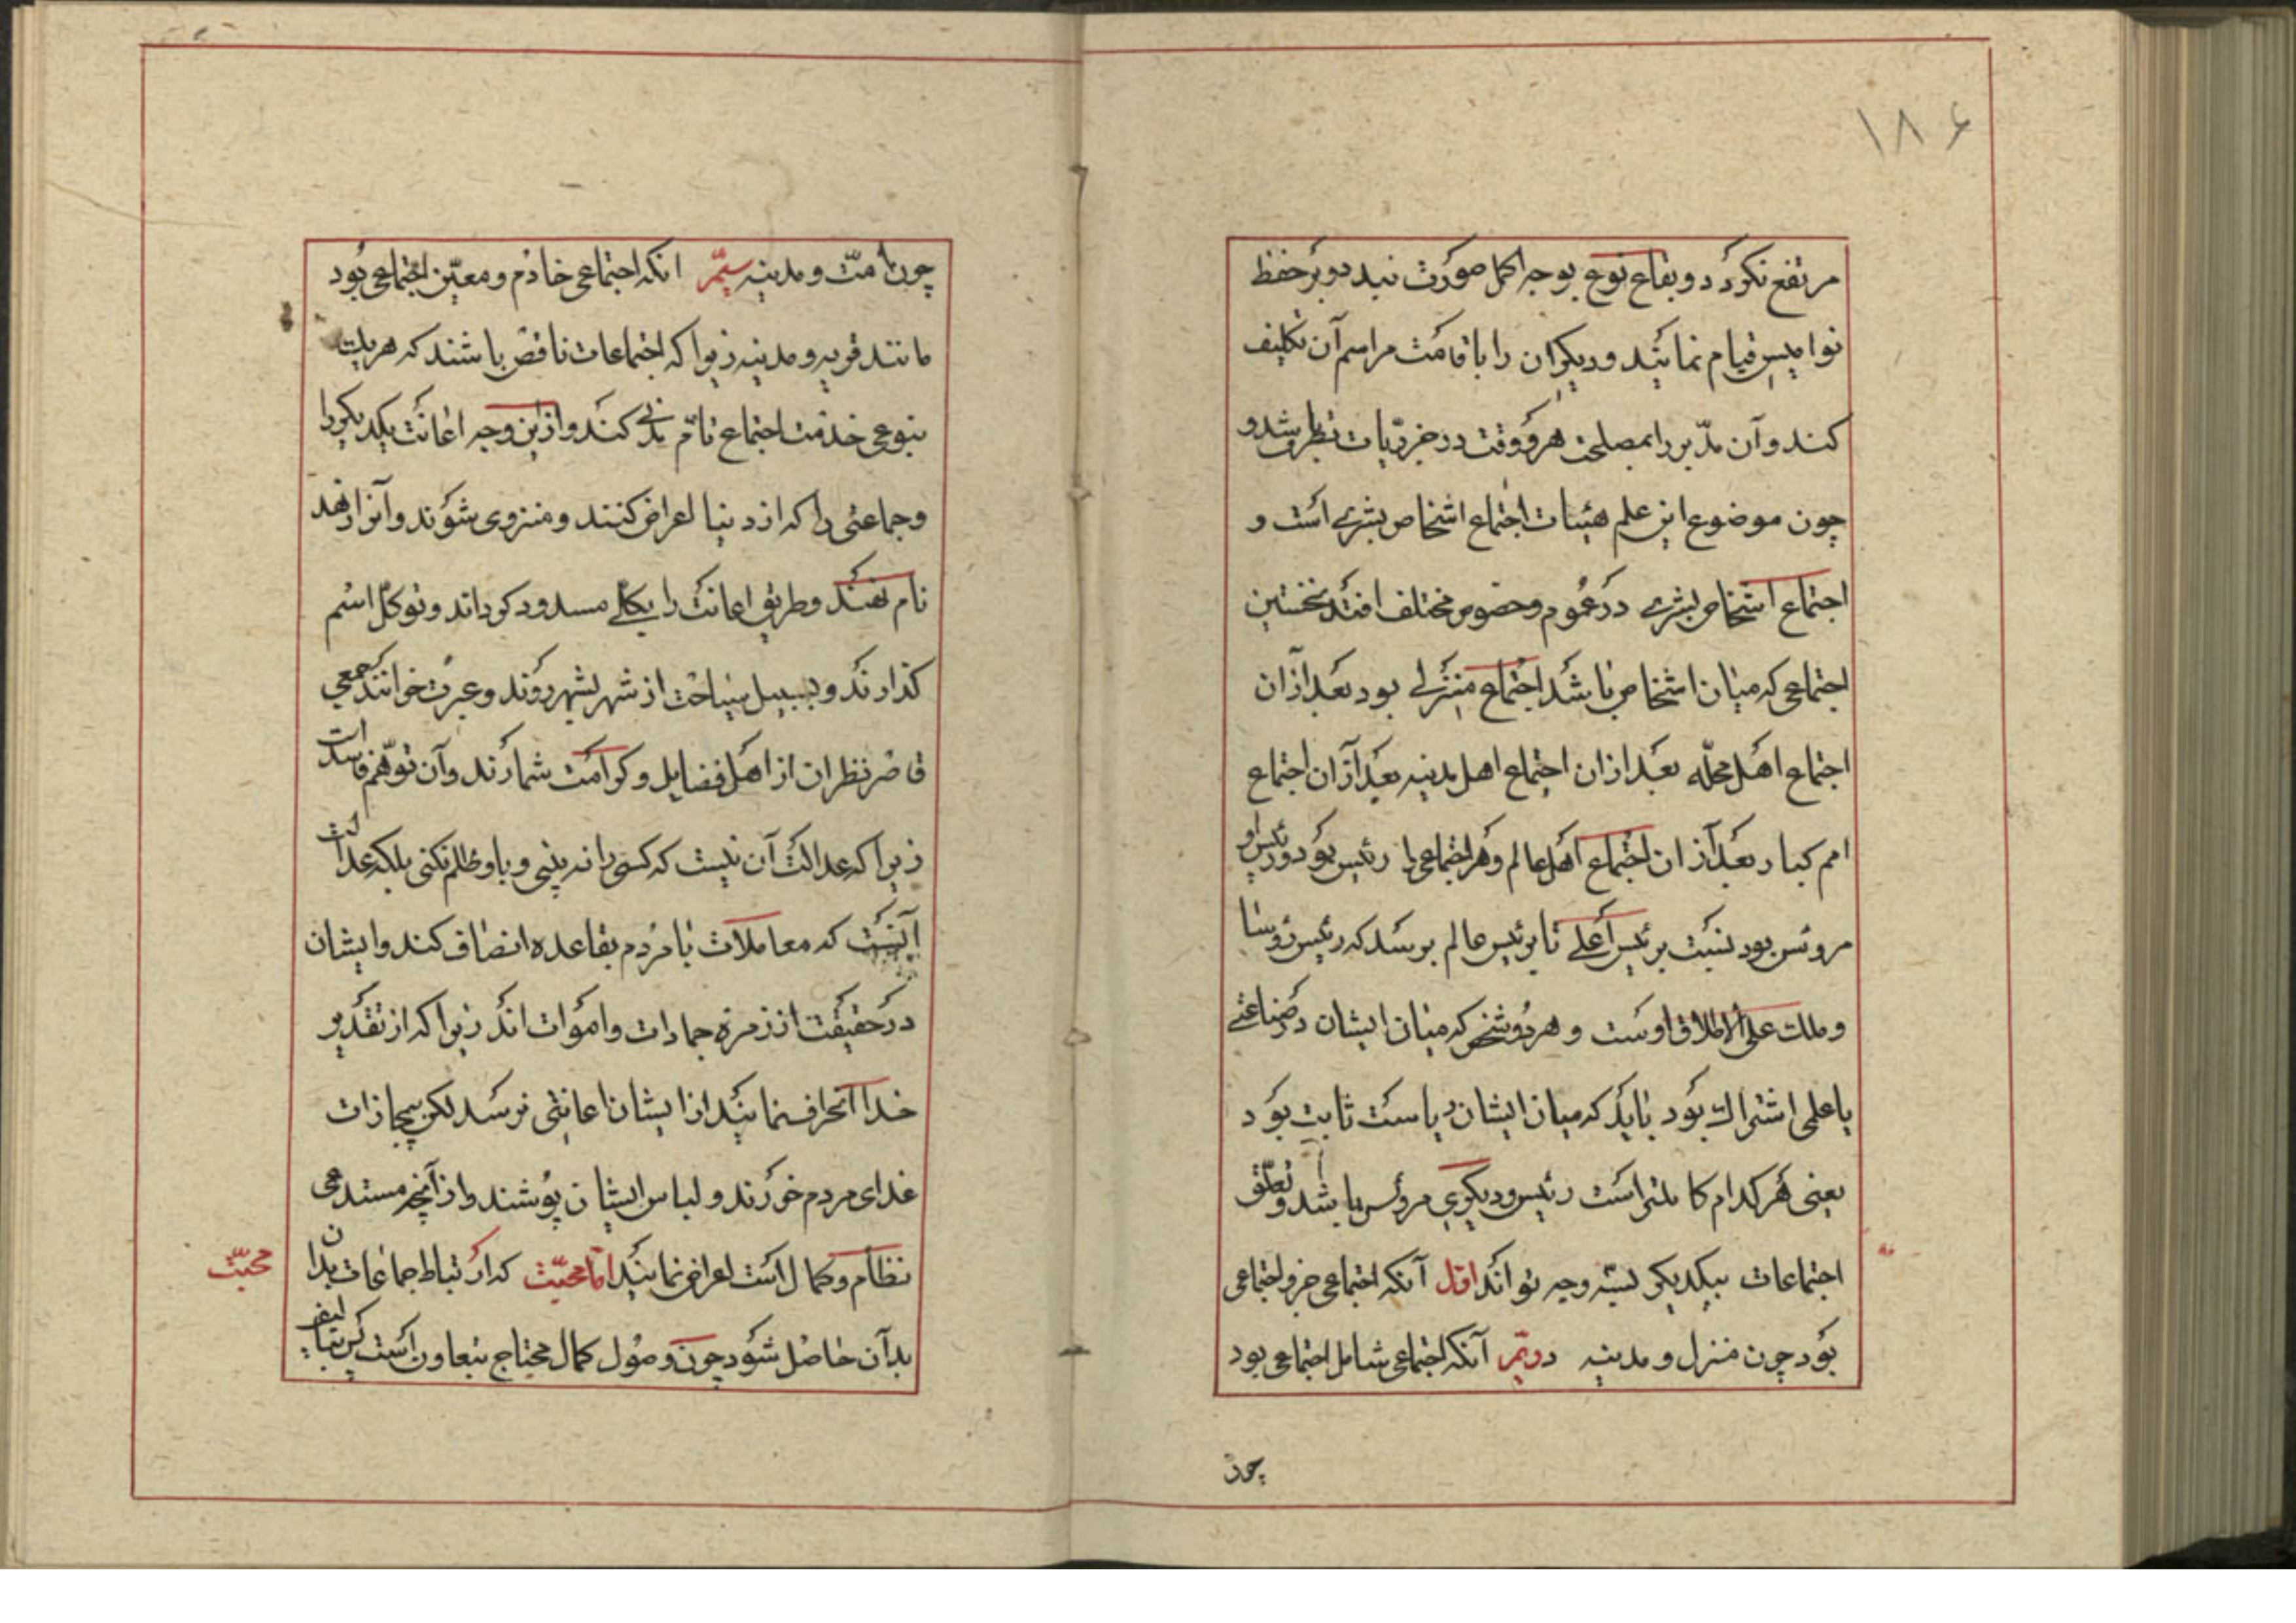 ۱۸۶
مرتفع نکردد و بقاع نوع بوجه اکمل صورت نبندد و بر حفظ
نوامیس قیام نمایند و دیکران را باقامت مراسم آن تکلیف
کند و آن مدّبر را بمصلحت هر وقت در جزویات نظر باشد و
چون موضوع این علم هیئات اجتماع اشخاص بشری است و
اجتماع اشخاص بشری در عموم و خصوص مختلف افتد نخستین
اجتماعی که میان اشخاص باشد اجتماع منزلی بود بعد ازان
اجتماع اهل محلّه بعد ازان اجتماع اهل مدینه بعد ازان اجتماع
امم کبار بعد ازان اجتماع اهل عالم و هر اجتماعی را رئیس بود و رئیس او
مرؤس بود نسبت برئیس اعلی تا برئیس عالم برسد که رئیس رؤسا
و ملک علی الاطلاق اوست و هر دو شخص که میان ایشان در صناعتی
یا علمی اشتراک بود باید که میان ایشان ریاست ثابت بود
یعنی هر کدام کاملتر است رئیس و دیکری مرؤس باشد و تعلّق
اجتماعات بیکدیکر بسه وجه تواند اوّل آنکه اجتماعی جزو اجتماعی
بود چون منزل و مدینه دویّم آنکه اجتماعی شامل اجتماعی بود
چون
چون امّت و مدینه سیّم انکه اجتماعی خادم و معیّن اجتماعی بود
مانند قریه و مدینه زیرا که اجتماعات ناقص باشند که هریک
بنوعی خدمت اجتماع تامّ مدنی کنند و ازین وجه اعانت یکدیکر را
و جماعتی را که از دنیا اعراض کنند و منزوی شوند و آنرا زهد
نام نهند و طریق اعانت را بکلی مسدود کردانند و توکّل اسم
کذارند و بسبیل سیاحت از شهر بشهر روند و عبرت خوانند جمعی
قاصر نظران از اهل فضایل و کرامت شمارند و آن توهّم فاسد است
زیرا که عدالت آن نیست که کسی را نه بینی و باو ظلم نکنی بلکه عدالت
آنست که معاملات با مردم بقاعده انصاف کند و ایشان
در حقیقت از زمرهٔ جمادات و اموات اند زیرا که از تقدیر
خدا انحراف نمایند از ایشان اعانتی نرسد لکن بمجازات
غذای مردم خورند و لباس ایشان پوشند و از آنچه مستدعی
نظام و کمال است اعراض نمایند امّا محبّت که ارتباط جماعات بدان
محبّت
بدآن حاصل شود چون وصول کمال محتاج بتعاون است کزیر بتالیف